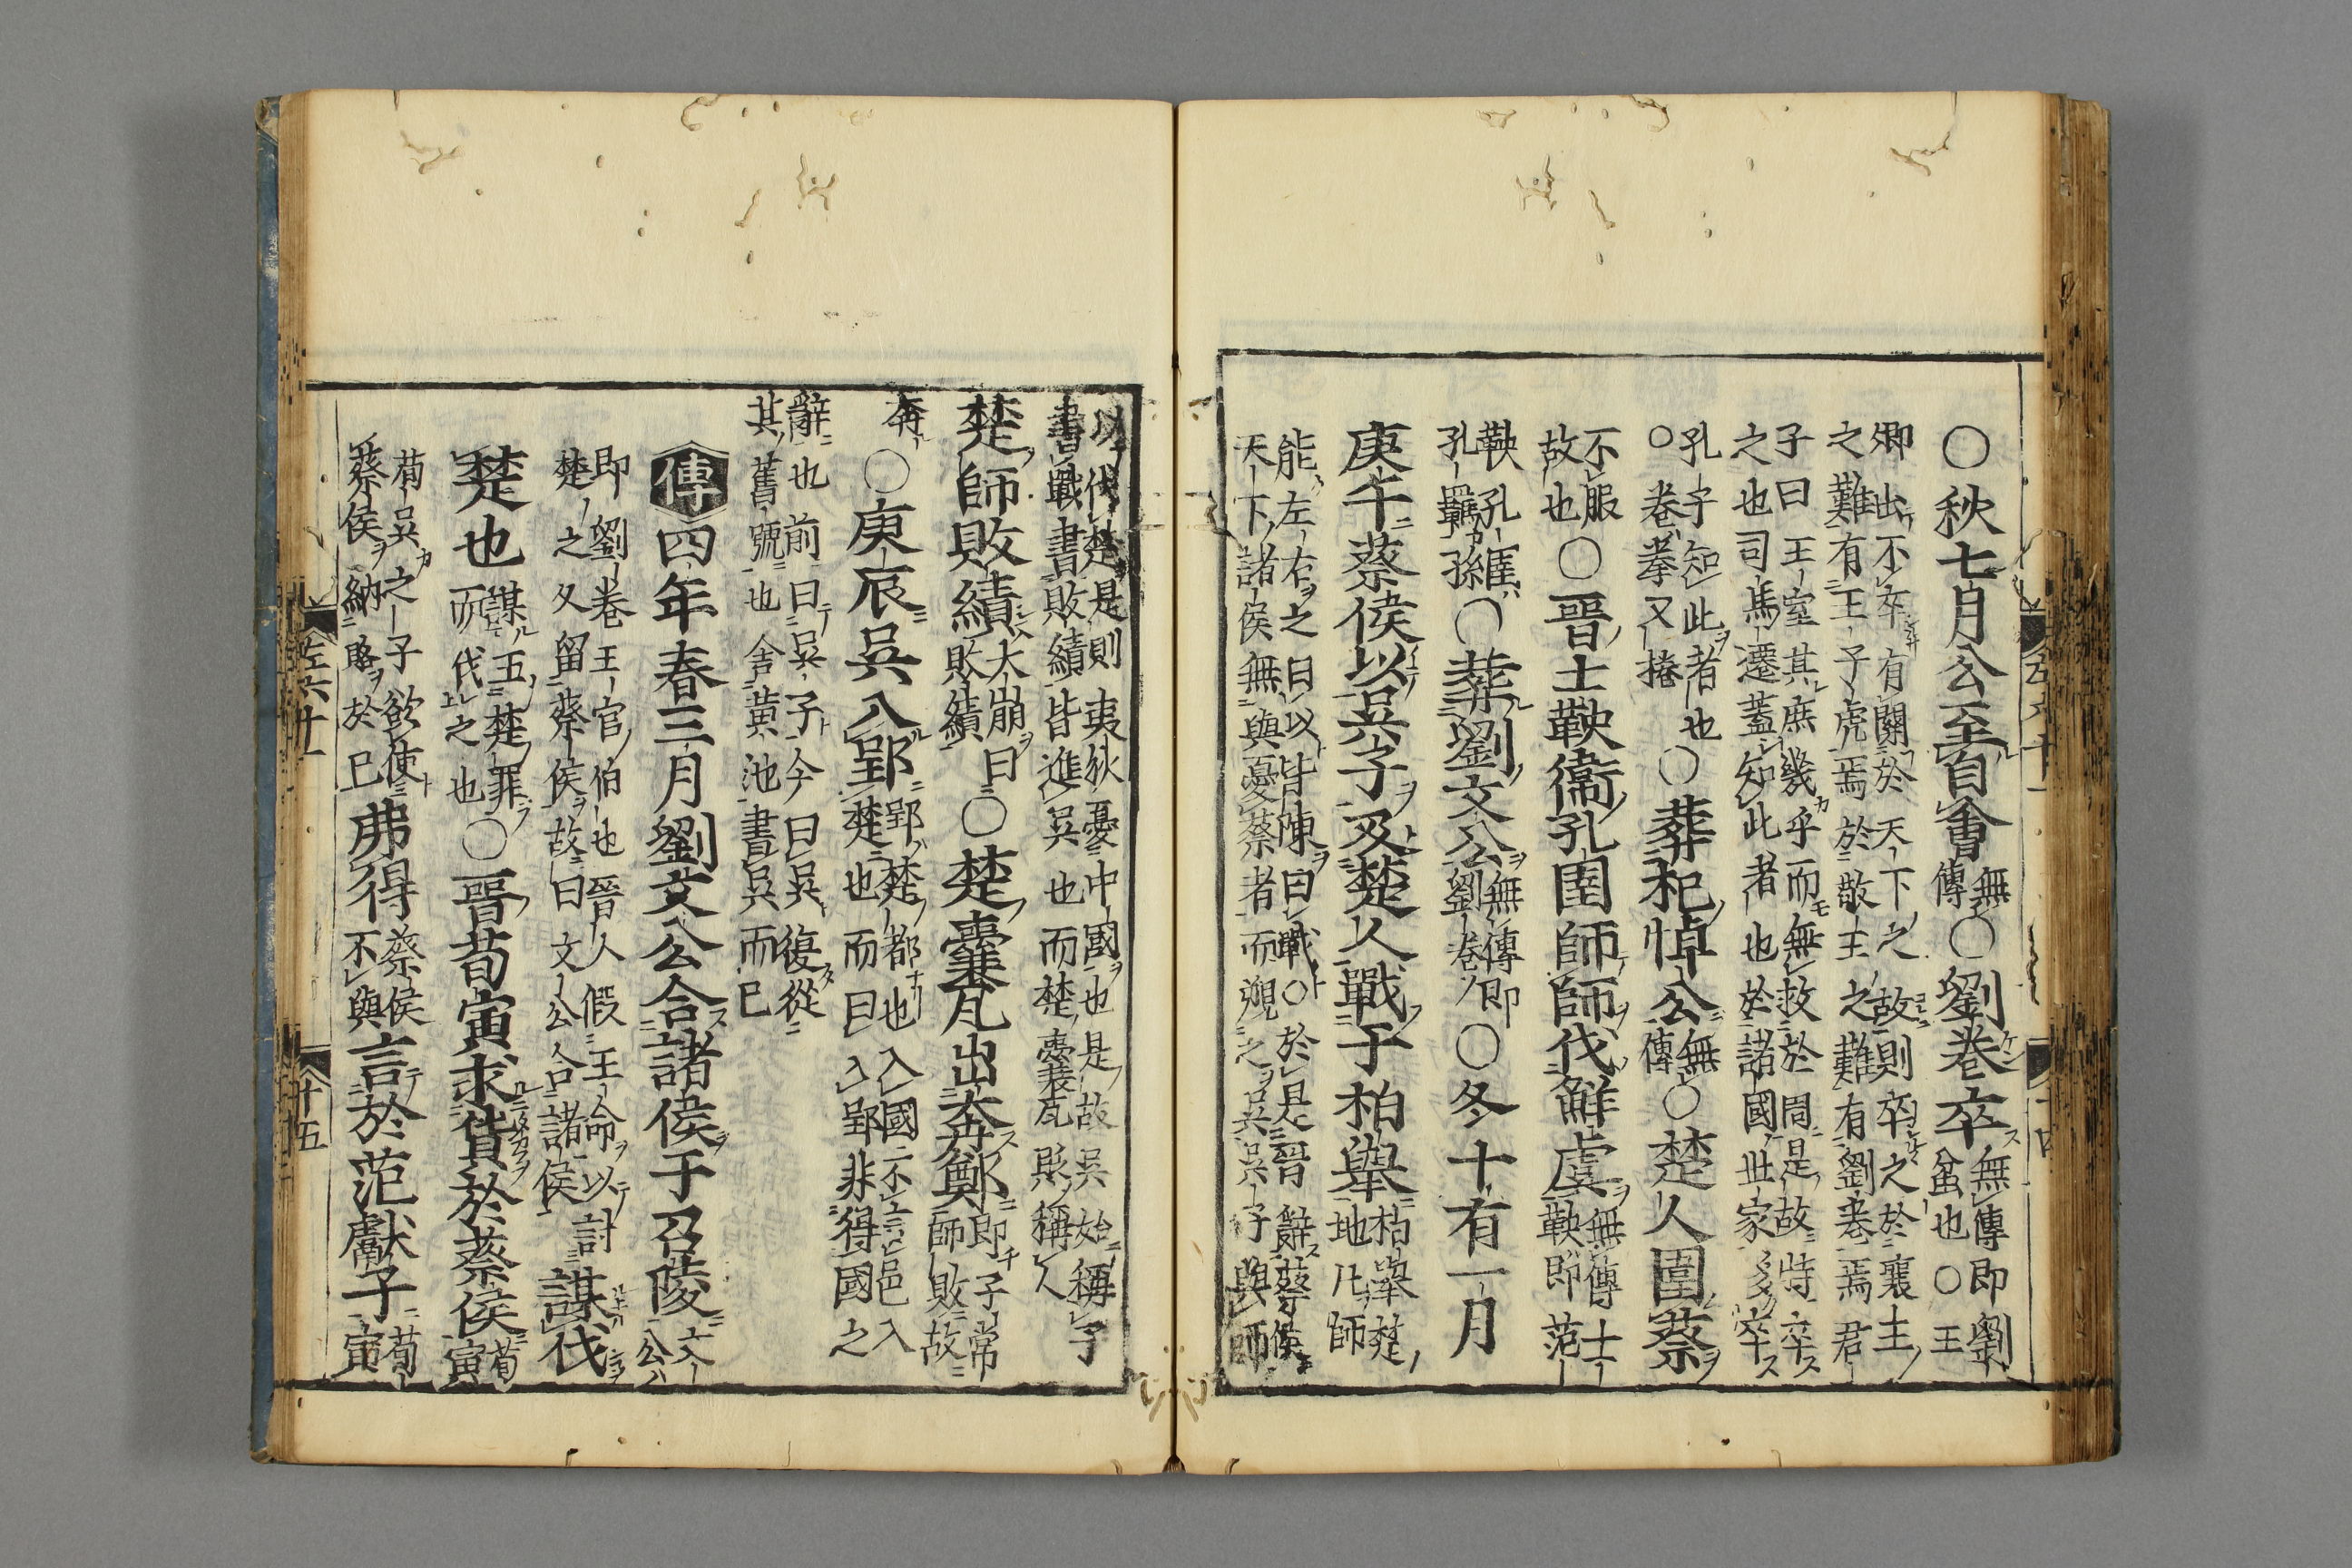 ○秋七月公至自會無傳○劉卷卒無傳即劉蚠也○王
卿出不卒有關於天下之故則卒之於襄王之難有王子虎焉於敬王之難有劉卷焉君
子曰王室其庶幾乎而無救於周是故特卒之也司馬遷蓋知此者也於諸國世家多卒
孔子知此者也○卷拳又捲○葬杞悼公無傳○楚人圍蔡
不服故也○晉士鞅衞孔圉帥師伐鮮虞無傳士鞅即范
鞅孔圉孔羈孫○葬劉文公無傳即劉卷○冬十有一月
庚午蔡侯以吳子及楚人戰于柏舉柏舉楚地凡師
能左右之曰以皆陳曰戰○於是晉辭蔡侯天下諸侯無與憂蔡者而遡之吳吳子與師
以伐楚是則夷狄憂中國也是故吳始稱子書戰書敗績皆進吳也而楚囊瓦貶稱人
楚師敗績大崩曰敗績○楚囊瓦出奔鄭即子常師敗故
奔○庚辰吳入郢郢楚都也入國不言邑入楚也而曰入郢非得國之
辭也前曰吳子今曰吳復從其舊號也舍黃池書吳而已
傳四年春三月劉文公合諸侯于召陵文公
即劉卷王官伯也晉人假王命以討楚之久留蔡侯故曰文公合諸侯謀伐
楚也謀五楚罪而伐之也○晉荀寅求貨於蔡侯荀寅
荀吳之子欲使蔡侯納賂於己弗得蔡侯不與言於范獻子荀寅
左六十一
十五